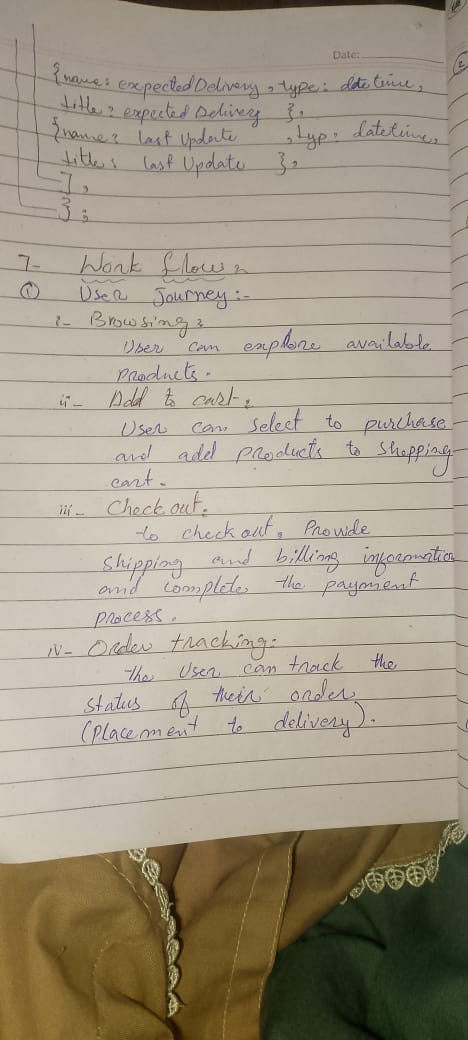 Date:
{name: expectedDelivery, type: datetime,
title: expected Delivery },
{name: last Update , typ: datetime,
title: last Update },
],
};
7- Work flow:
① User Journey:-
i- Browsing:
User can explore available
products.
ii- Add to cart:
User can select to purchase
and add products to shopping
cart.
iii- Check out:
to check out, Provide
shipping and billing information
and complete the payment
process.
iv- Order tracking:
the User can track the
status of their order
(Placement to delivery).